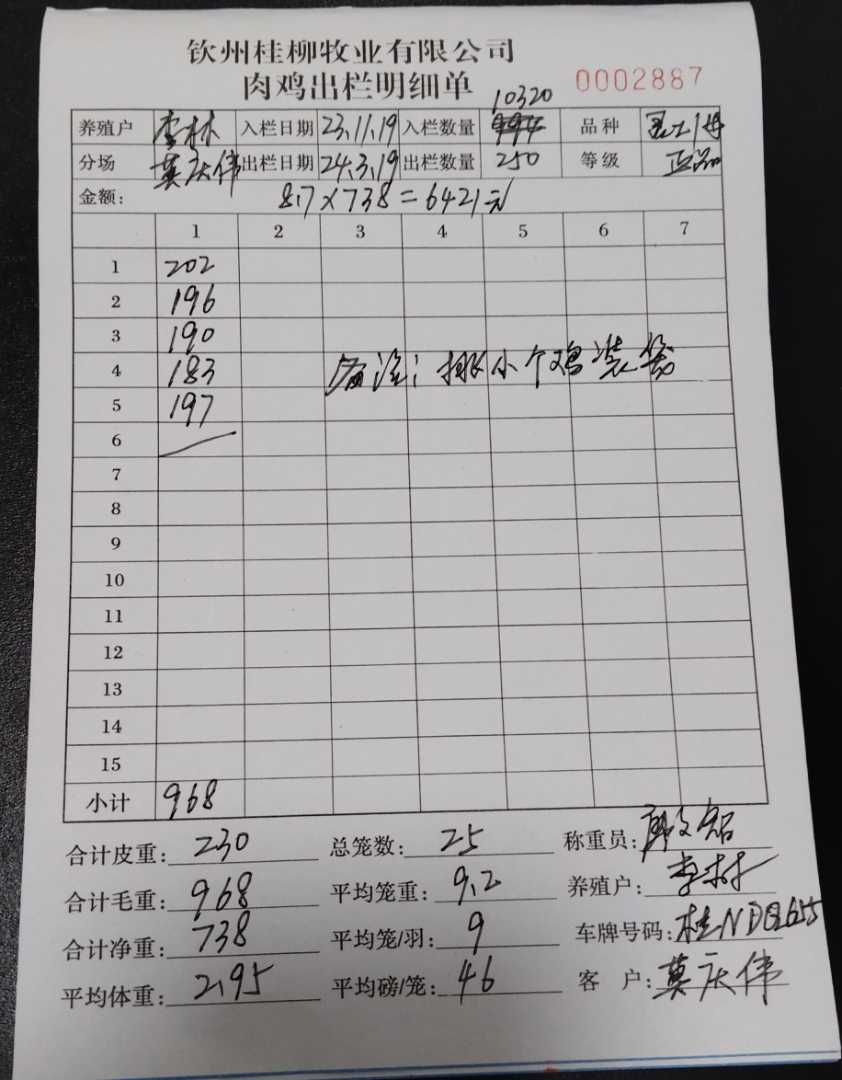 钦州桂柳牧业有限公司
肉鸡出栏明细单 0002887
10320
养殖户 李林 入栏日期 23.11.19 入栏数量 994 品种
分场 莫庆伟 出栏日期 24.3.19 出栏数量 250 等级 正品
金额: 8.7×738=6421元
1 2 3 4 5 6 7
1 202
2 196
3 190
4 183 备注: 挑小个鸡装袋
5 197
6
7
8
9
10
11
12
13
14
15
小计 968
合计皮重: 230 总笼数: 25 称重员:
合计毛重: 968 平均笼重: 9.2 养殖户: 李林
合计净重: 738 平均笼/羽: 9 车牌号码: 桂NDQ655
平均体重: 2.95 平均磅/笼: 46 客户: 莫庆伟